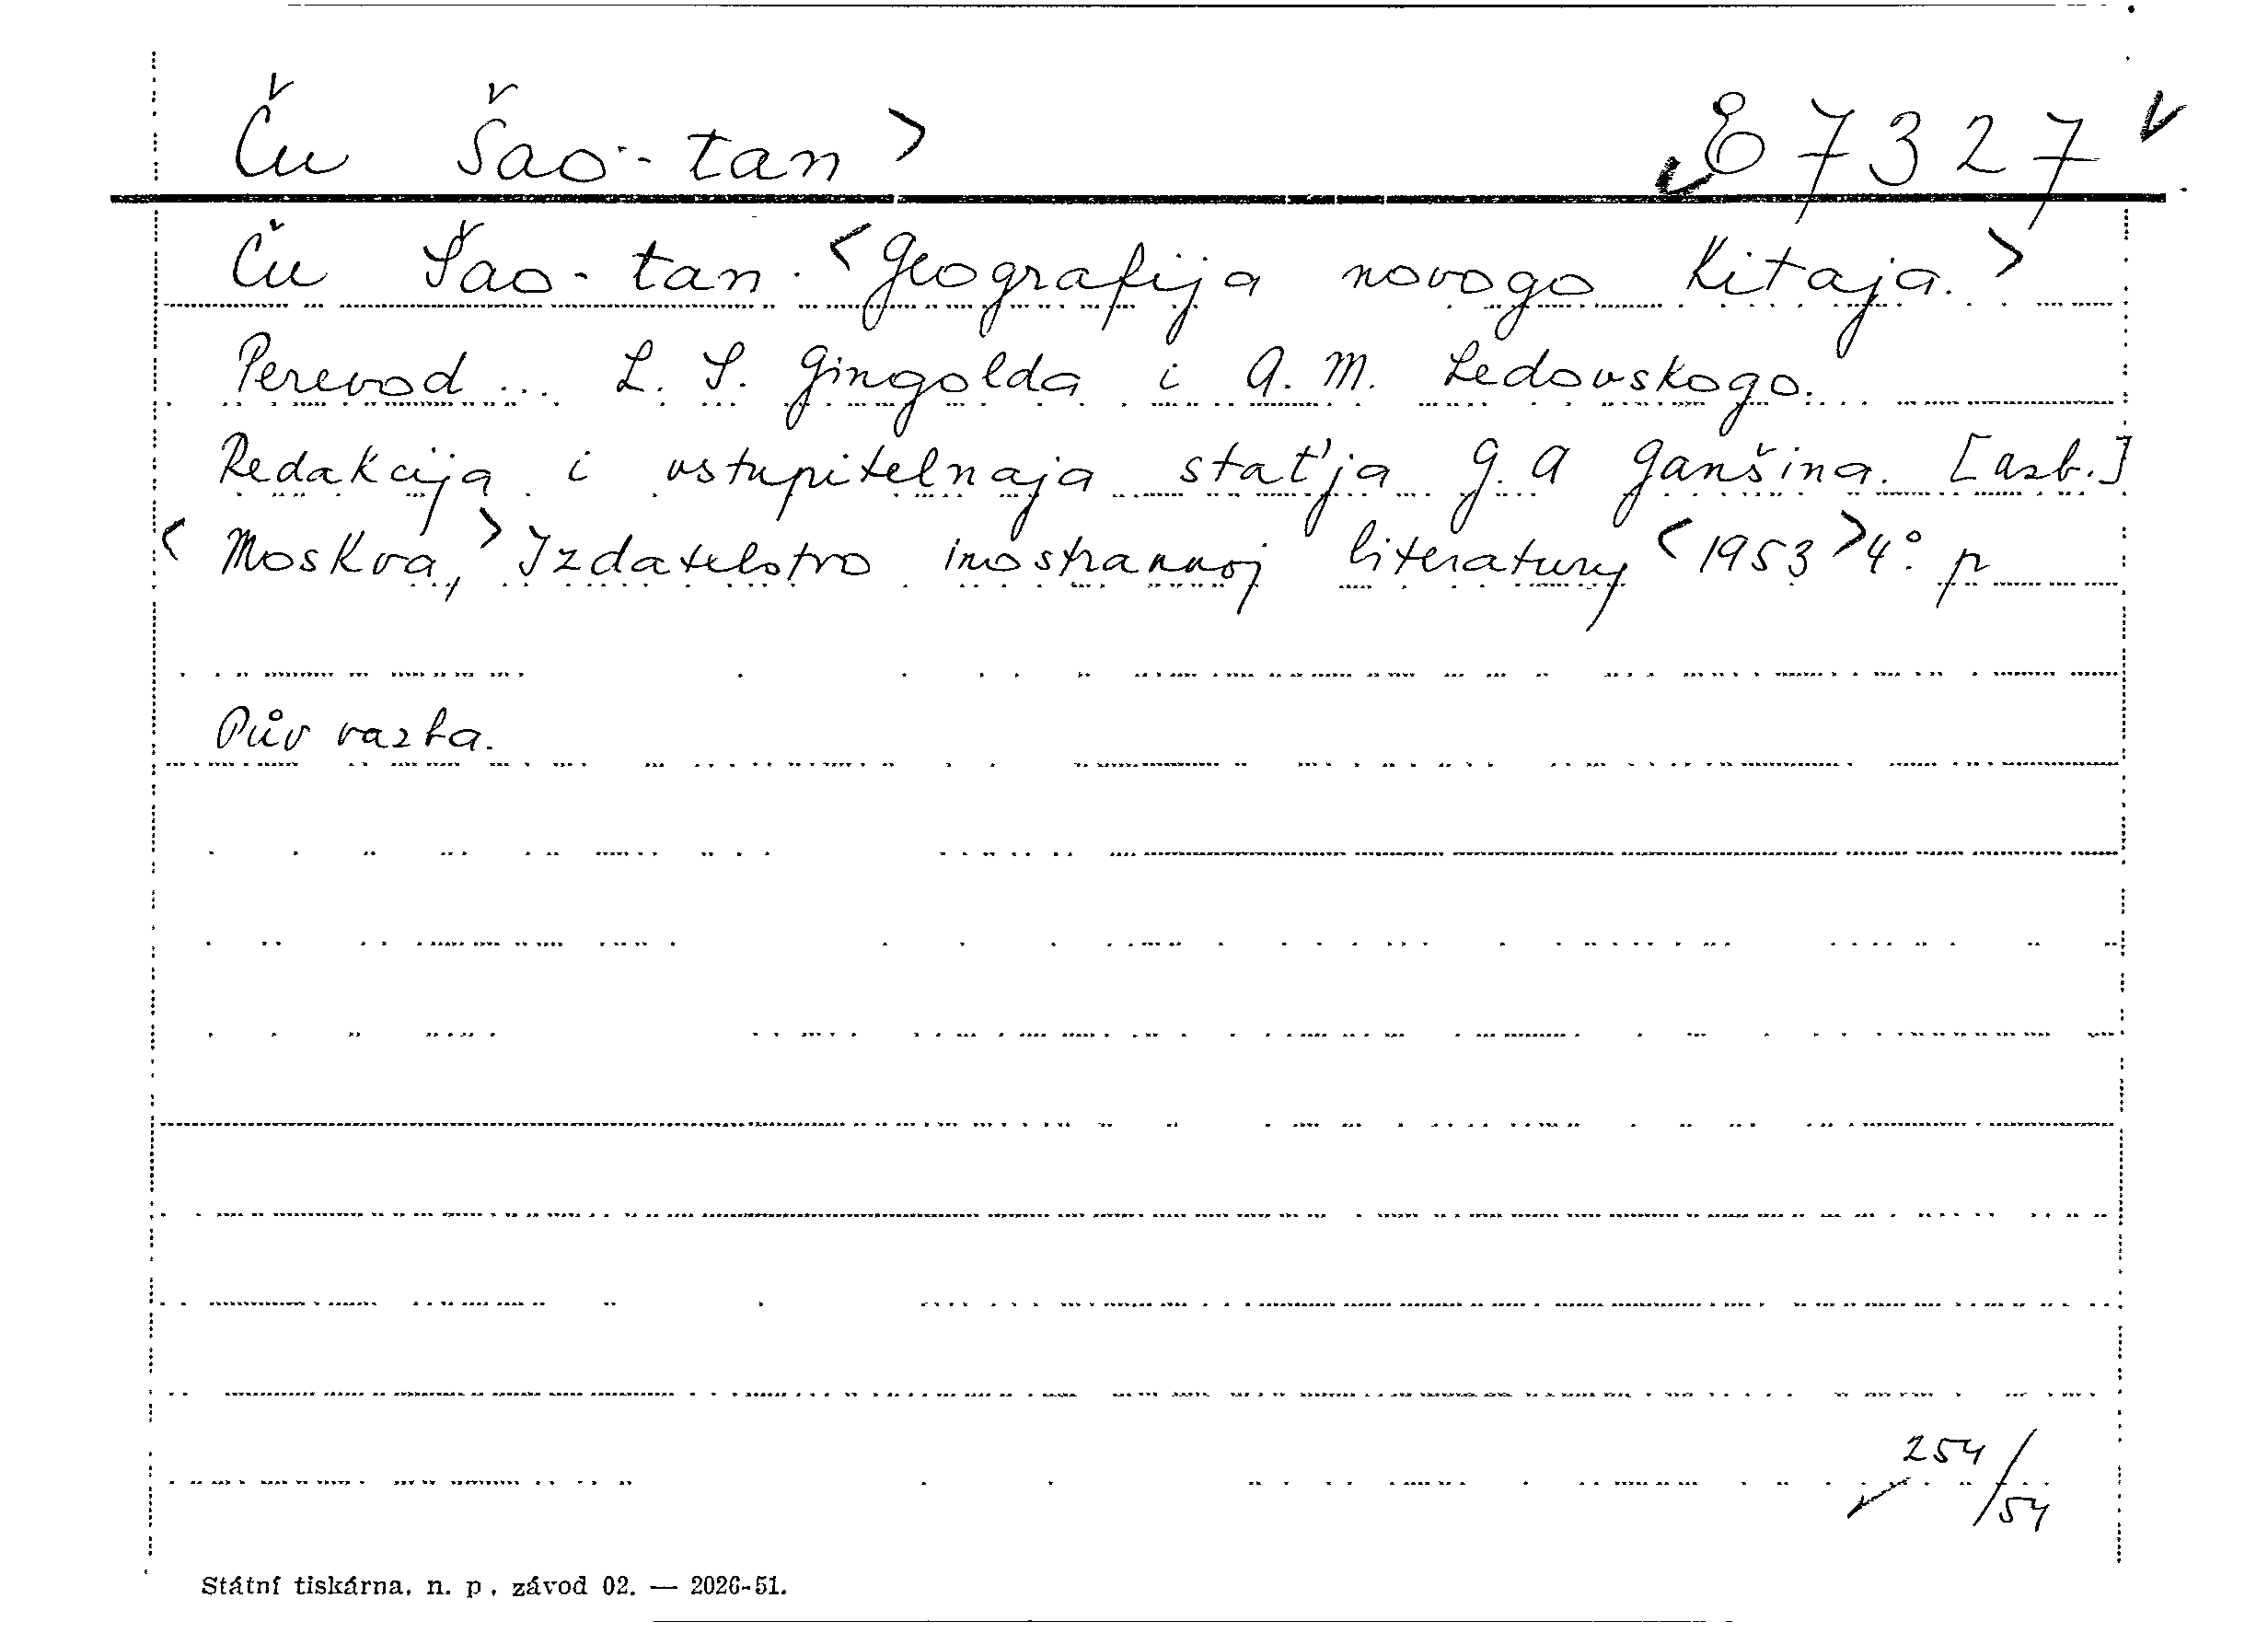 Ču Šao-tan> E 7327
Ču Šao-tan. <Geografija novogo Kitaja.>
Perevod ... L. S. Gingolda i A. M. Ledovskogo.
Redakcija i vstupitelnaja stať'ja G. A Ganšina. [azb.]
<Moskva,> Izdatelstvo inostrannoj literatury <1953> 4°. p
Pův vazba.
254/54
Státní tiskárna, n. p., závod 02. — 2026-51.